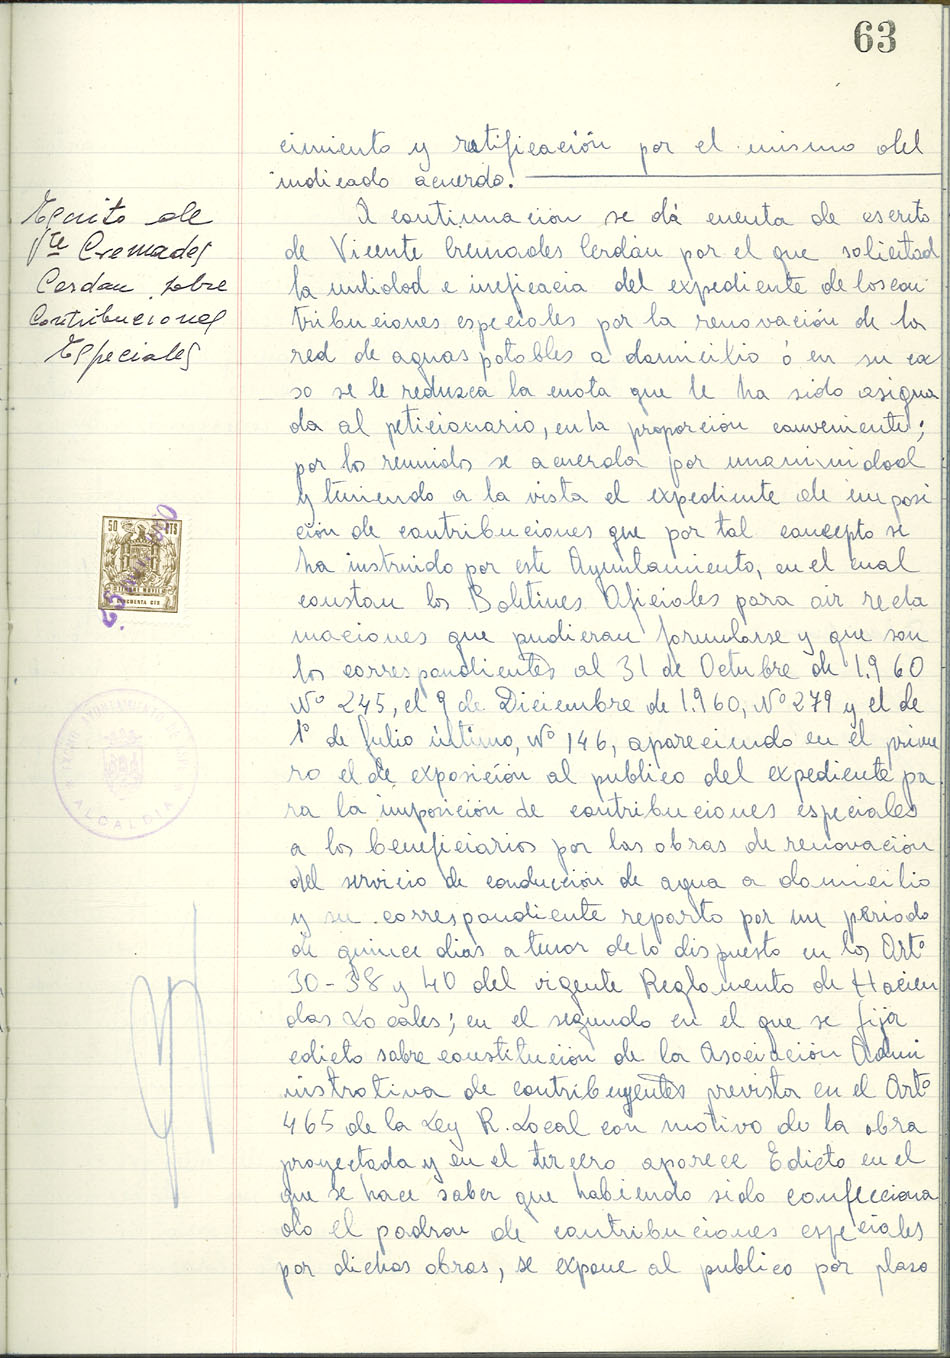 63
cimiento y ratificación por el mismo del
indicado acuerdo.
Escrito de
Vte Cremades
Cerdan sobre
Contribuciones
Especiales
A continuación se dá cuenta de escrito
de Vicente Cremades Cerdán por el que solicitad
la nulidad e ineficacia del expediente de las con
tribuciones especiales por la renovación de la
red de aguas potables a domicilio ó en su ca
so se le reduzca la cuota que le ha sido asigna
da al peticionario, en la proporción conveniente;
por los reunidos se acuerda por unanimidad
y teniendo a la vista el expediente de imposi
ción de contribuciones que por tal concepto se
ha instruido por este Ayuntamiento, en el cual
constan los Boletines Oficiales para oir recla
maciones que pudieran formularse y que son
los correspondientes al 31 de Octubre de 1.960
Nº 245, el 9 de Diciembre de 1.960, Nº 279 y el de
1º de Julio último, Nº 146, apareciendo en el prime
ro el de exposición al publico del expediente pa
ra la imposición de contribuciones especiales
a los beneficiarios por las obras de renovación
del servicio de conducción de agua a domicilio
y su correspondiente reparto por un período
de quince dias a tenor de lo dispuesto en los Artº
30-38 y 40 del vigente Reglamento de Hacien
das Locales; en el segundo en el que se fija
edicto sobre constitución de la Asociación Admi
nistrativa de contribuyentes prevista en el Artº
465 de la Ley R. Local con motivo de la obra
proyectada y en el tercero aparece Edicto en el
que se hace saber que habiendo sido confecciona
do el padron de contribuciones especiales
por dichas obras, se expone al publico por plazo
50 CTS
TIMBRE MOVIL
CINCUENTA CTS
AYUNTAMIENTO DE
ALCALDIA